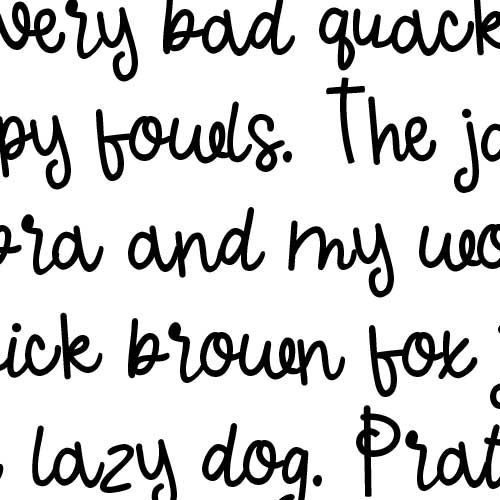 very bad quack
py fowls. The ja
ora and my wo
ick brown fox
lazy dog. Prat